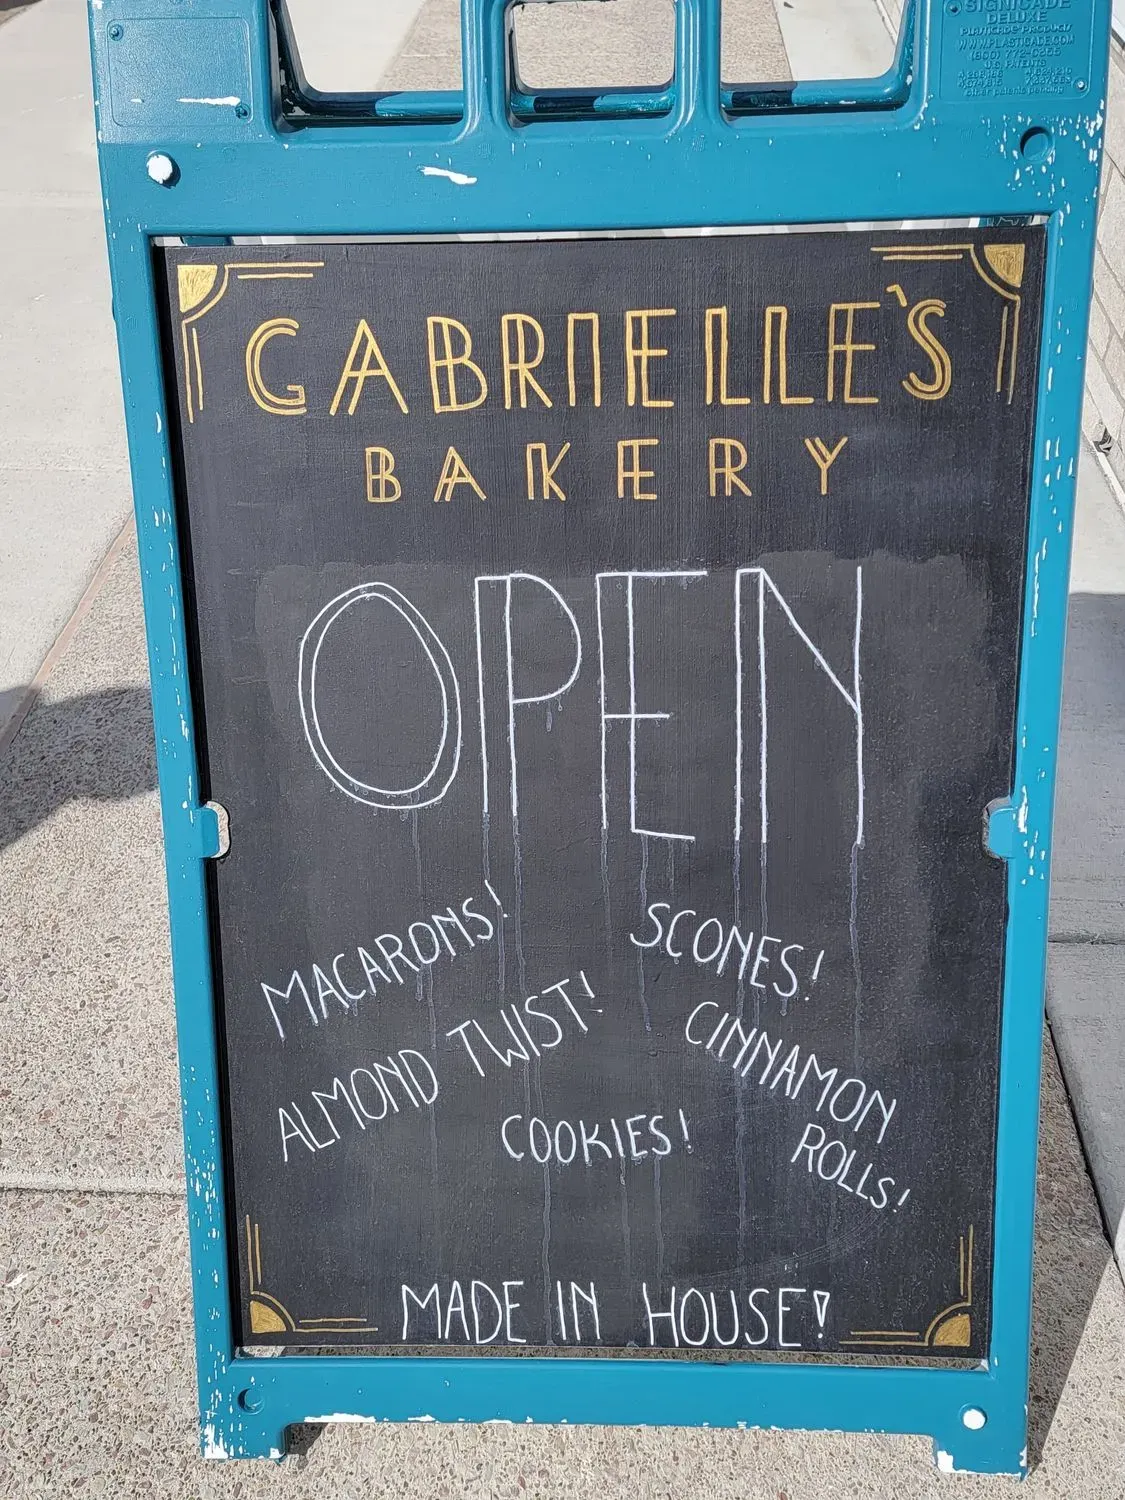 SIGNICADE
DELUXE
PLASTICADE PRODUCT
WWW.PLASTICADE.COM
U.S. PATENTS
other patents pending
GABRIELLE'S
BAKERY
OPEN
MACARONS!
SCONES!
ALMOND TWIST!
CINNAMON
ROLLS!
COOKIES!
MADE IN HOUSE!